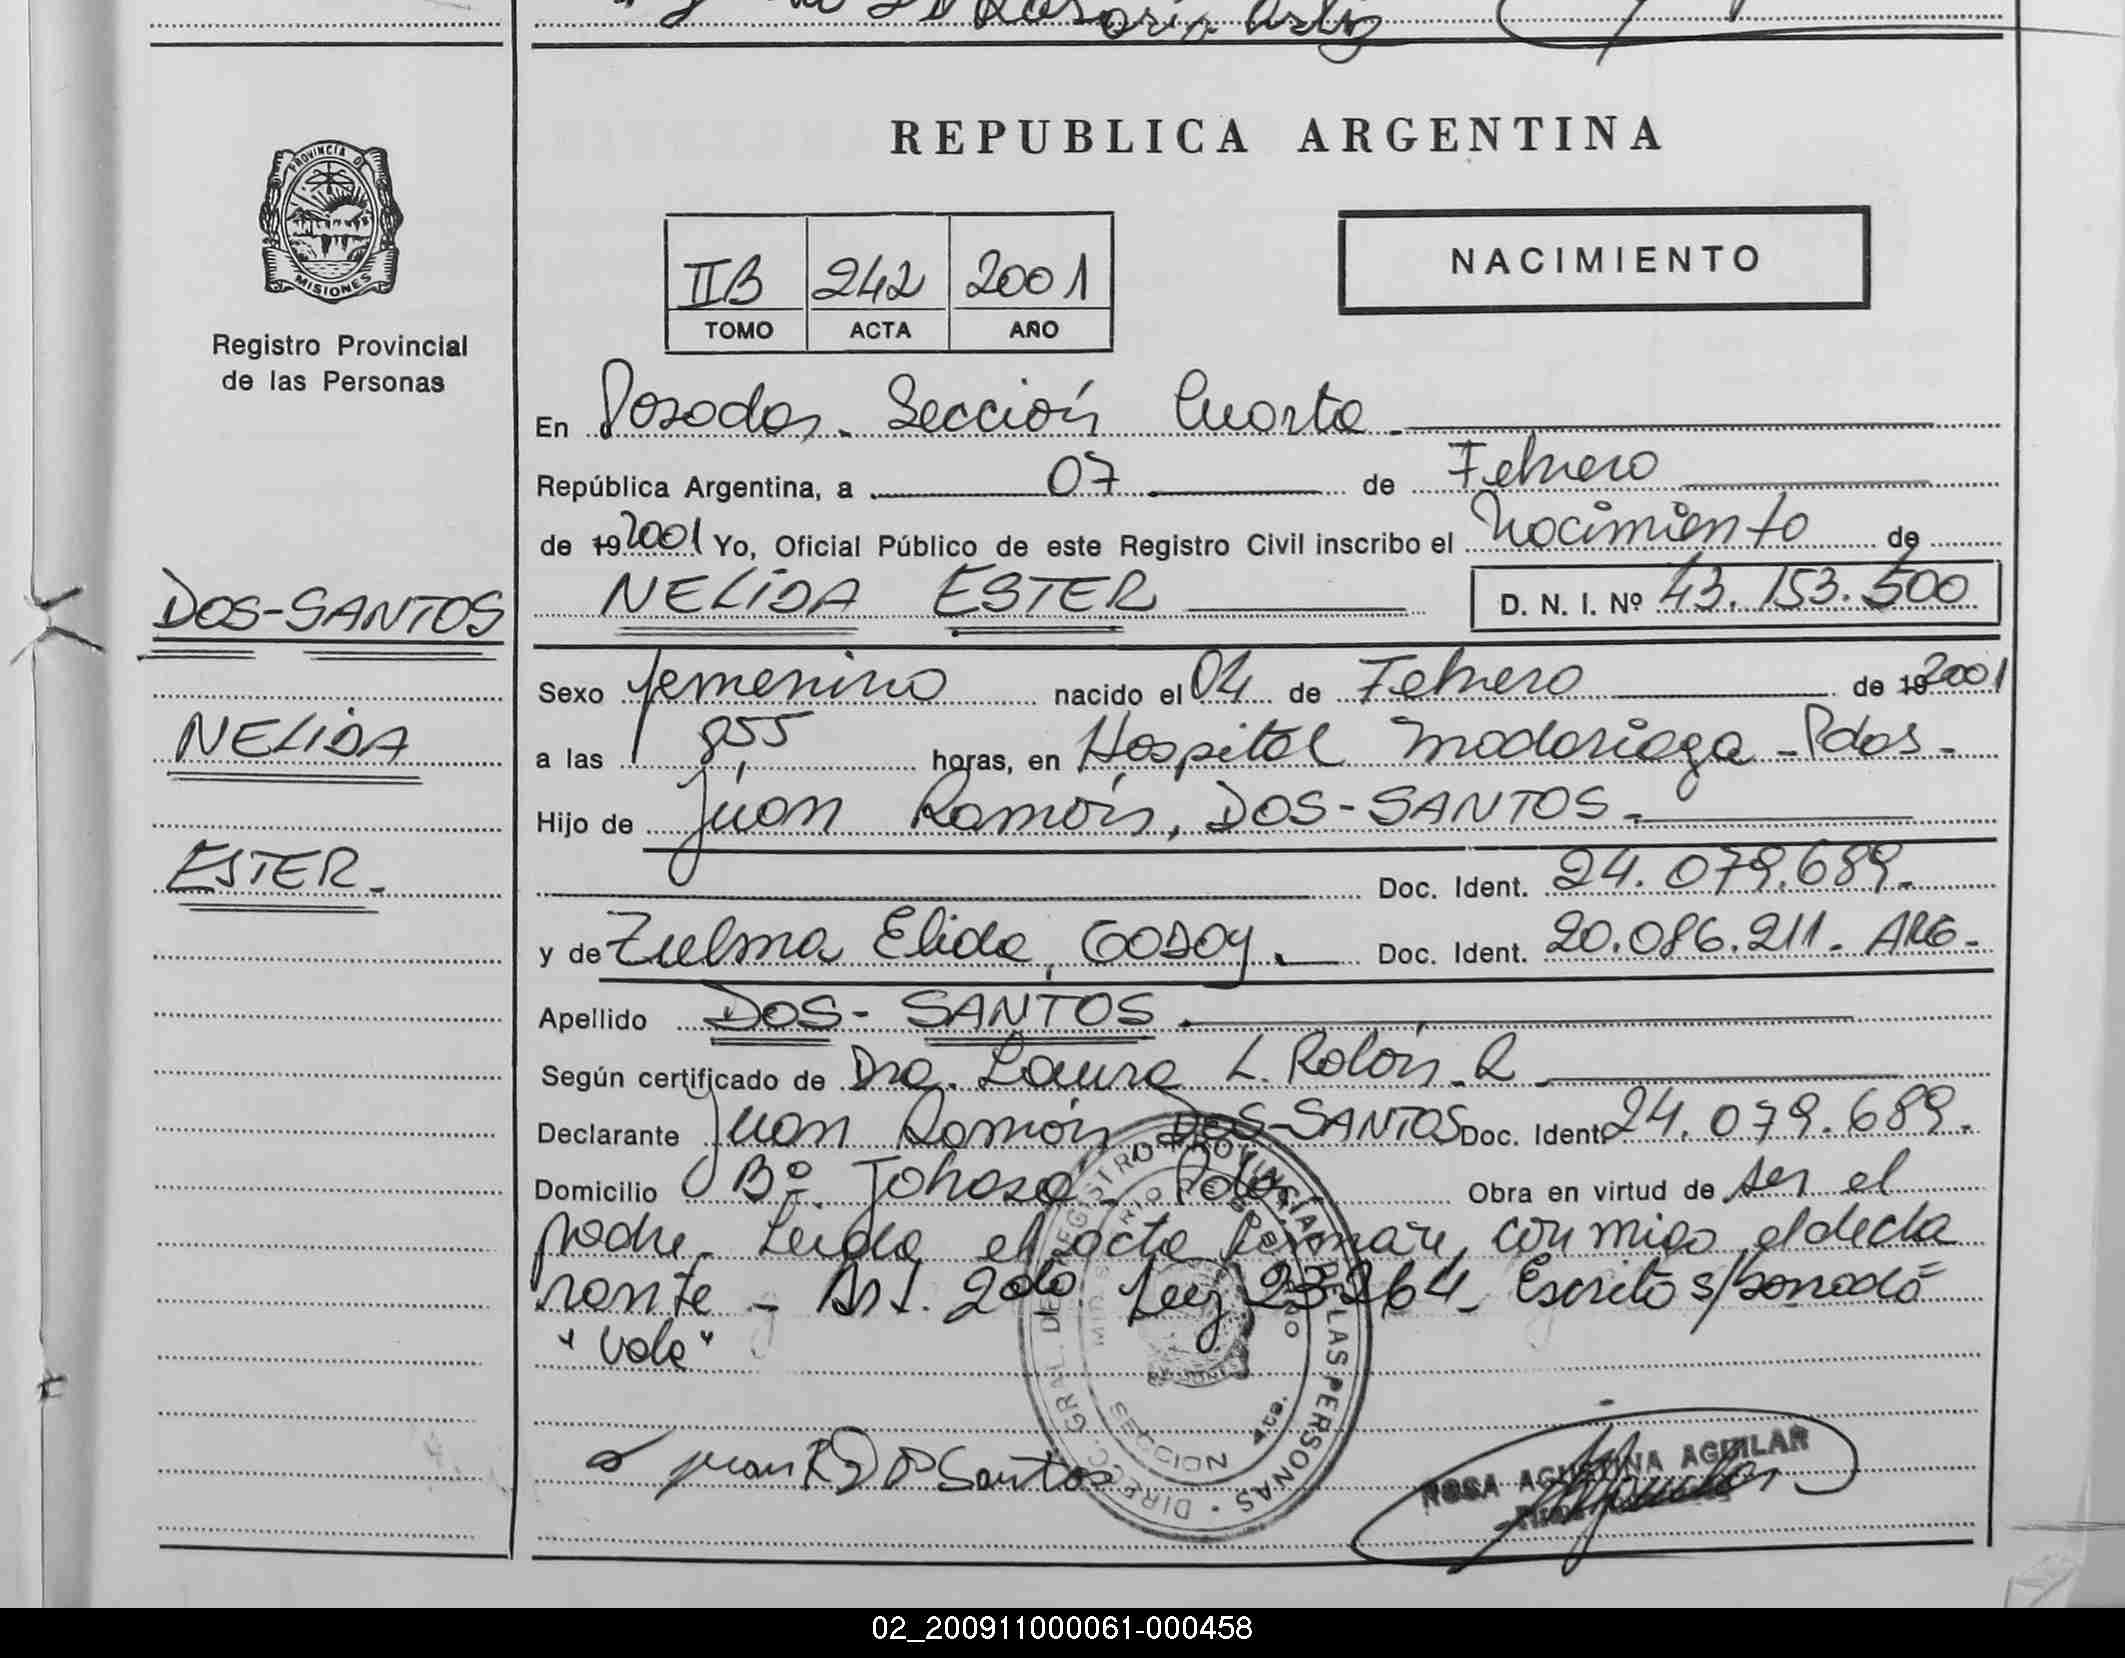 PROVINCIA D
MISIONES
Registro Provincial
de las Personas
DOS-SANTOS
NELIDA
ESTER-
REPUBLICA ARGENTINA
IIB 242 2001
TOMO ACTA AÑO
NACIMIENTO
En Posadas. Sección Cuarta.
República Argentina, a 07 de Febrero
de 192001 Yo, Oficial Público de este Registro Civil inscribo el Nacimiento de
NELIDA ESTER D. N. I. Nº 43.153.500
Sexo femenino nacido el 04 de Febrero de 192001
a las 8,55 horas, en Hospital Madariaga - Pdas -
Hijo de Juan Ramón, DOS-SANTOS -
Doc. Ident. 24.079.689.
y de Zulma Elida, GODOY. Doc. Ident. 20.086.211. ARG-
Apellido DOS-SANTOS.
Según certificado de Dra. Laura L. Rolón. R
Declarante Juan Ramón DOS-SANTOS Doc. Ident. 24.079.689.
Domicilio Bº Pdas. Obra en virtud de ser el
padre. Leída el acta conmigo el decla
rante - Art. 2do Ley 23264. Escrito s/borrado
"Vale"
DIRECC. GRAL. DE REGISTRO PROVINCIAL DE LAS PERSONAS
SECCION 4ta.
Juan R D Santos
ROSA AGUSTINA AGUILAR
02_200911000061-000458